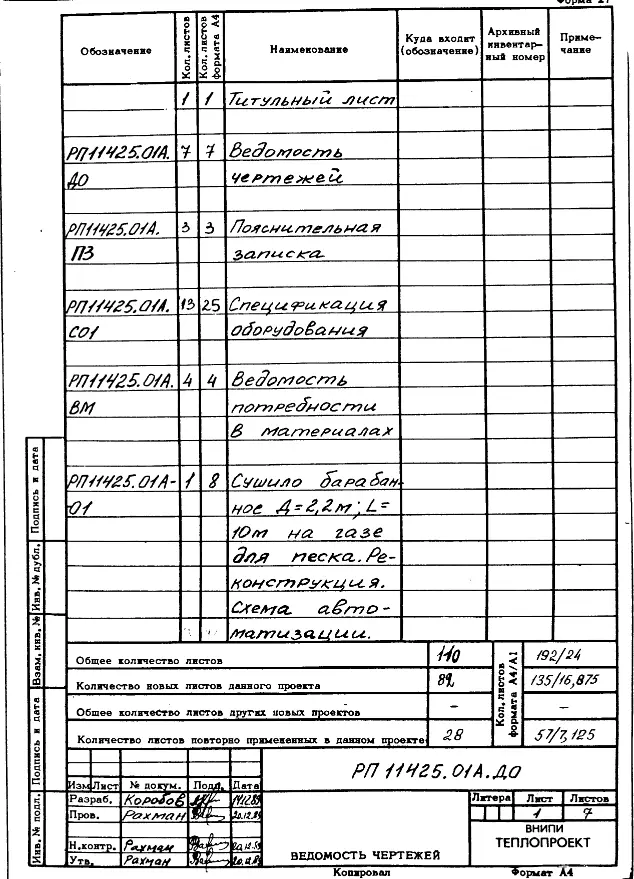 Форма 27
Обозначение
Кол. листов
Кол. листов формата А4
Наименование
Куда входит (обозначение)
Архивный инвентарный номер
Примечание
1 1 Титульный лист
РП11425.01А. 7 7 Ведомость
ДО чертежей
РП11425.01А. 3 3 Пояснительная
ПЗ записка
РП11425.01А. 13 25 Спецификация
СО1 оборудования
РП11425.01А. 4 4 Ведомость
ВМ потребности
в материалах
РП11425.01А- 1 8 Сушило барабан-
01 ное Д=2,2м; L=
10м на газе
для песка. Ре-
конструкция.
Схема авто-
матизации.
Общее количество листов 110
Количество новых листов данного проекта 82
Общее количество листов других новых проектов –
Количество листов повторно примененных в данном проекте 28
Кол. листов формата А4/А1
192/24
135/16,875
–
57/7,125
РП 11425.01А.ДО
Изм Лист № докум. Подп. Дата
Разраб. Коробов 14.12.89
Пров. Рахман 20.12.89
Н.контр. Рахман
Утв. Рахман
ВЕДОМОСТЬ ЧЕРТЕЖЕЙ
Литера Лист Листов
1 7
ВНИПИ
ТЕПЛОПРОЕКТ
Копировал Формат А4
Подпись и дата
Инв. № дубл.
Взам. инв. №
Подпись и дата
Инв. № подл.